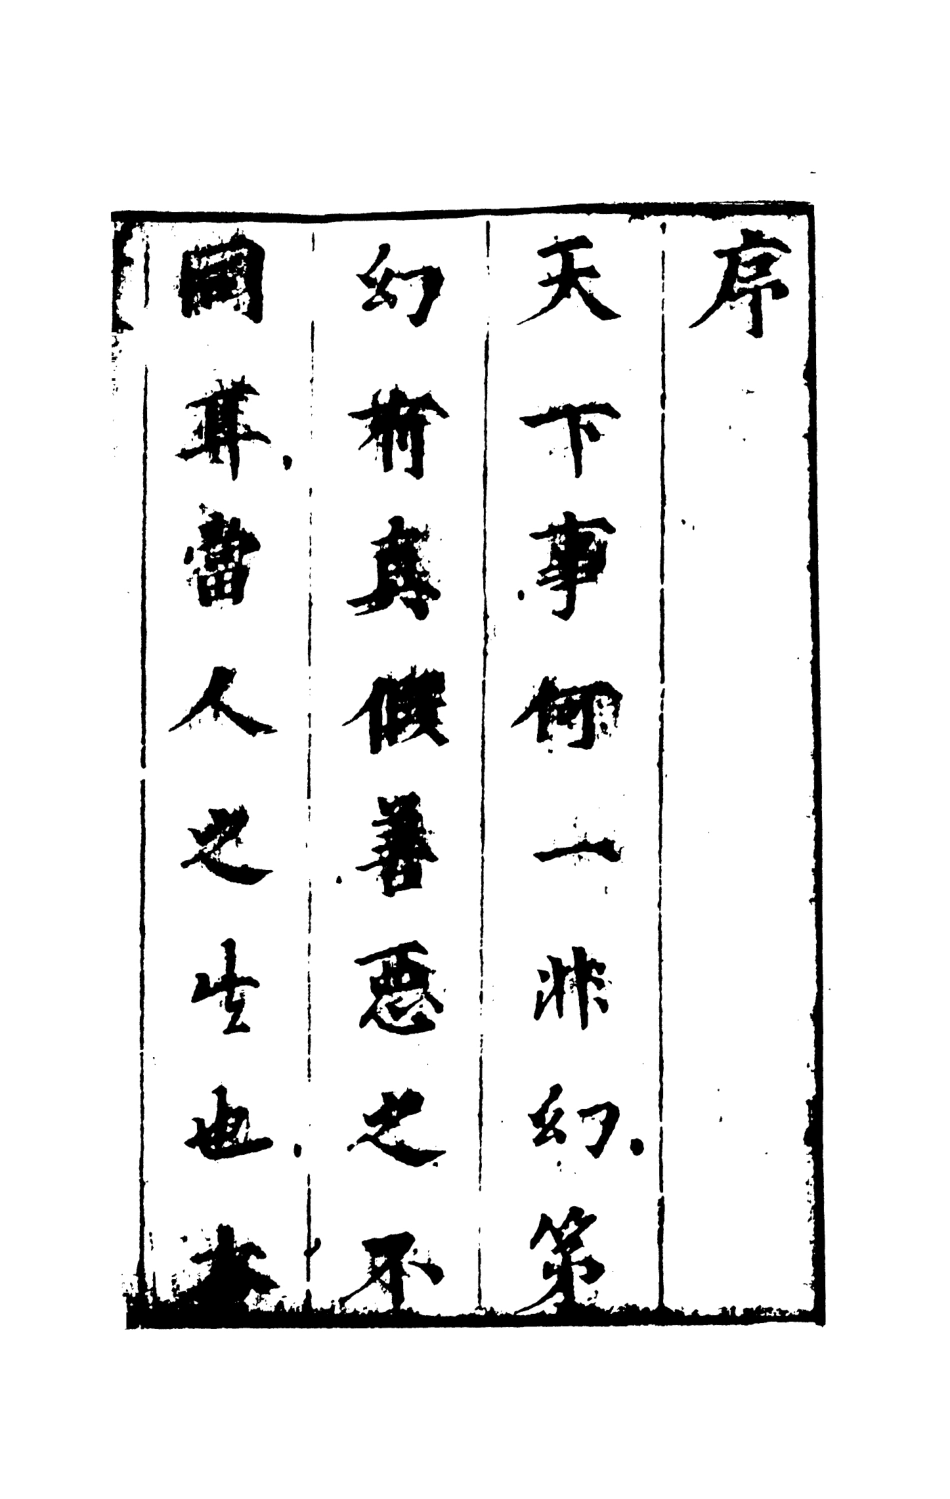 序
天下事何一非幻第
幻術真假善惡之不
同耳當人之生也本